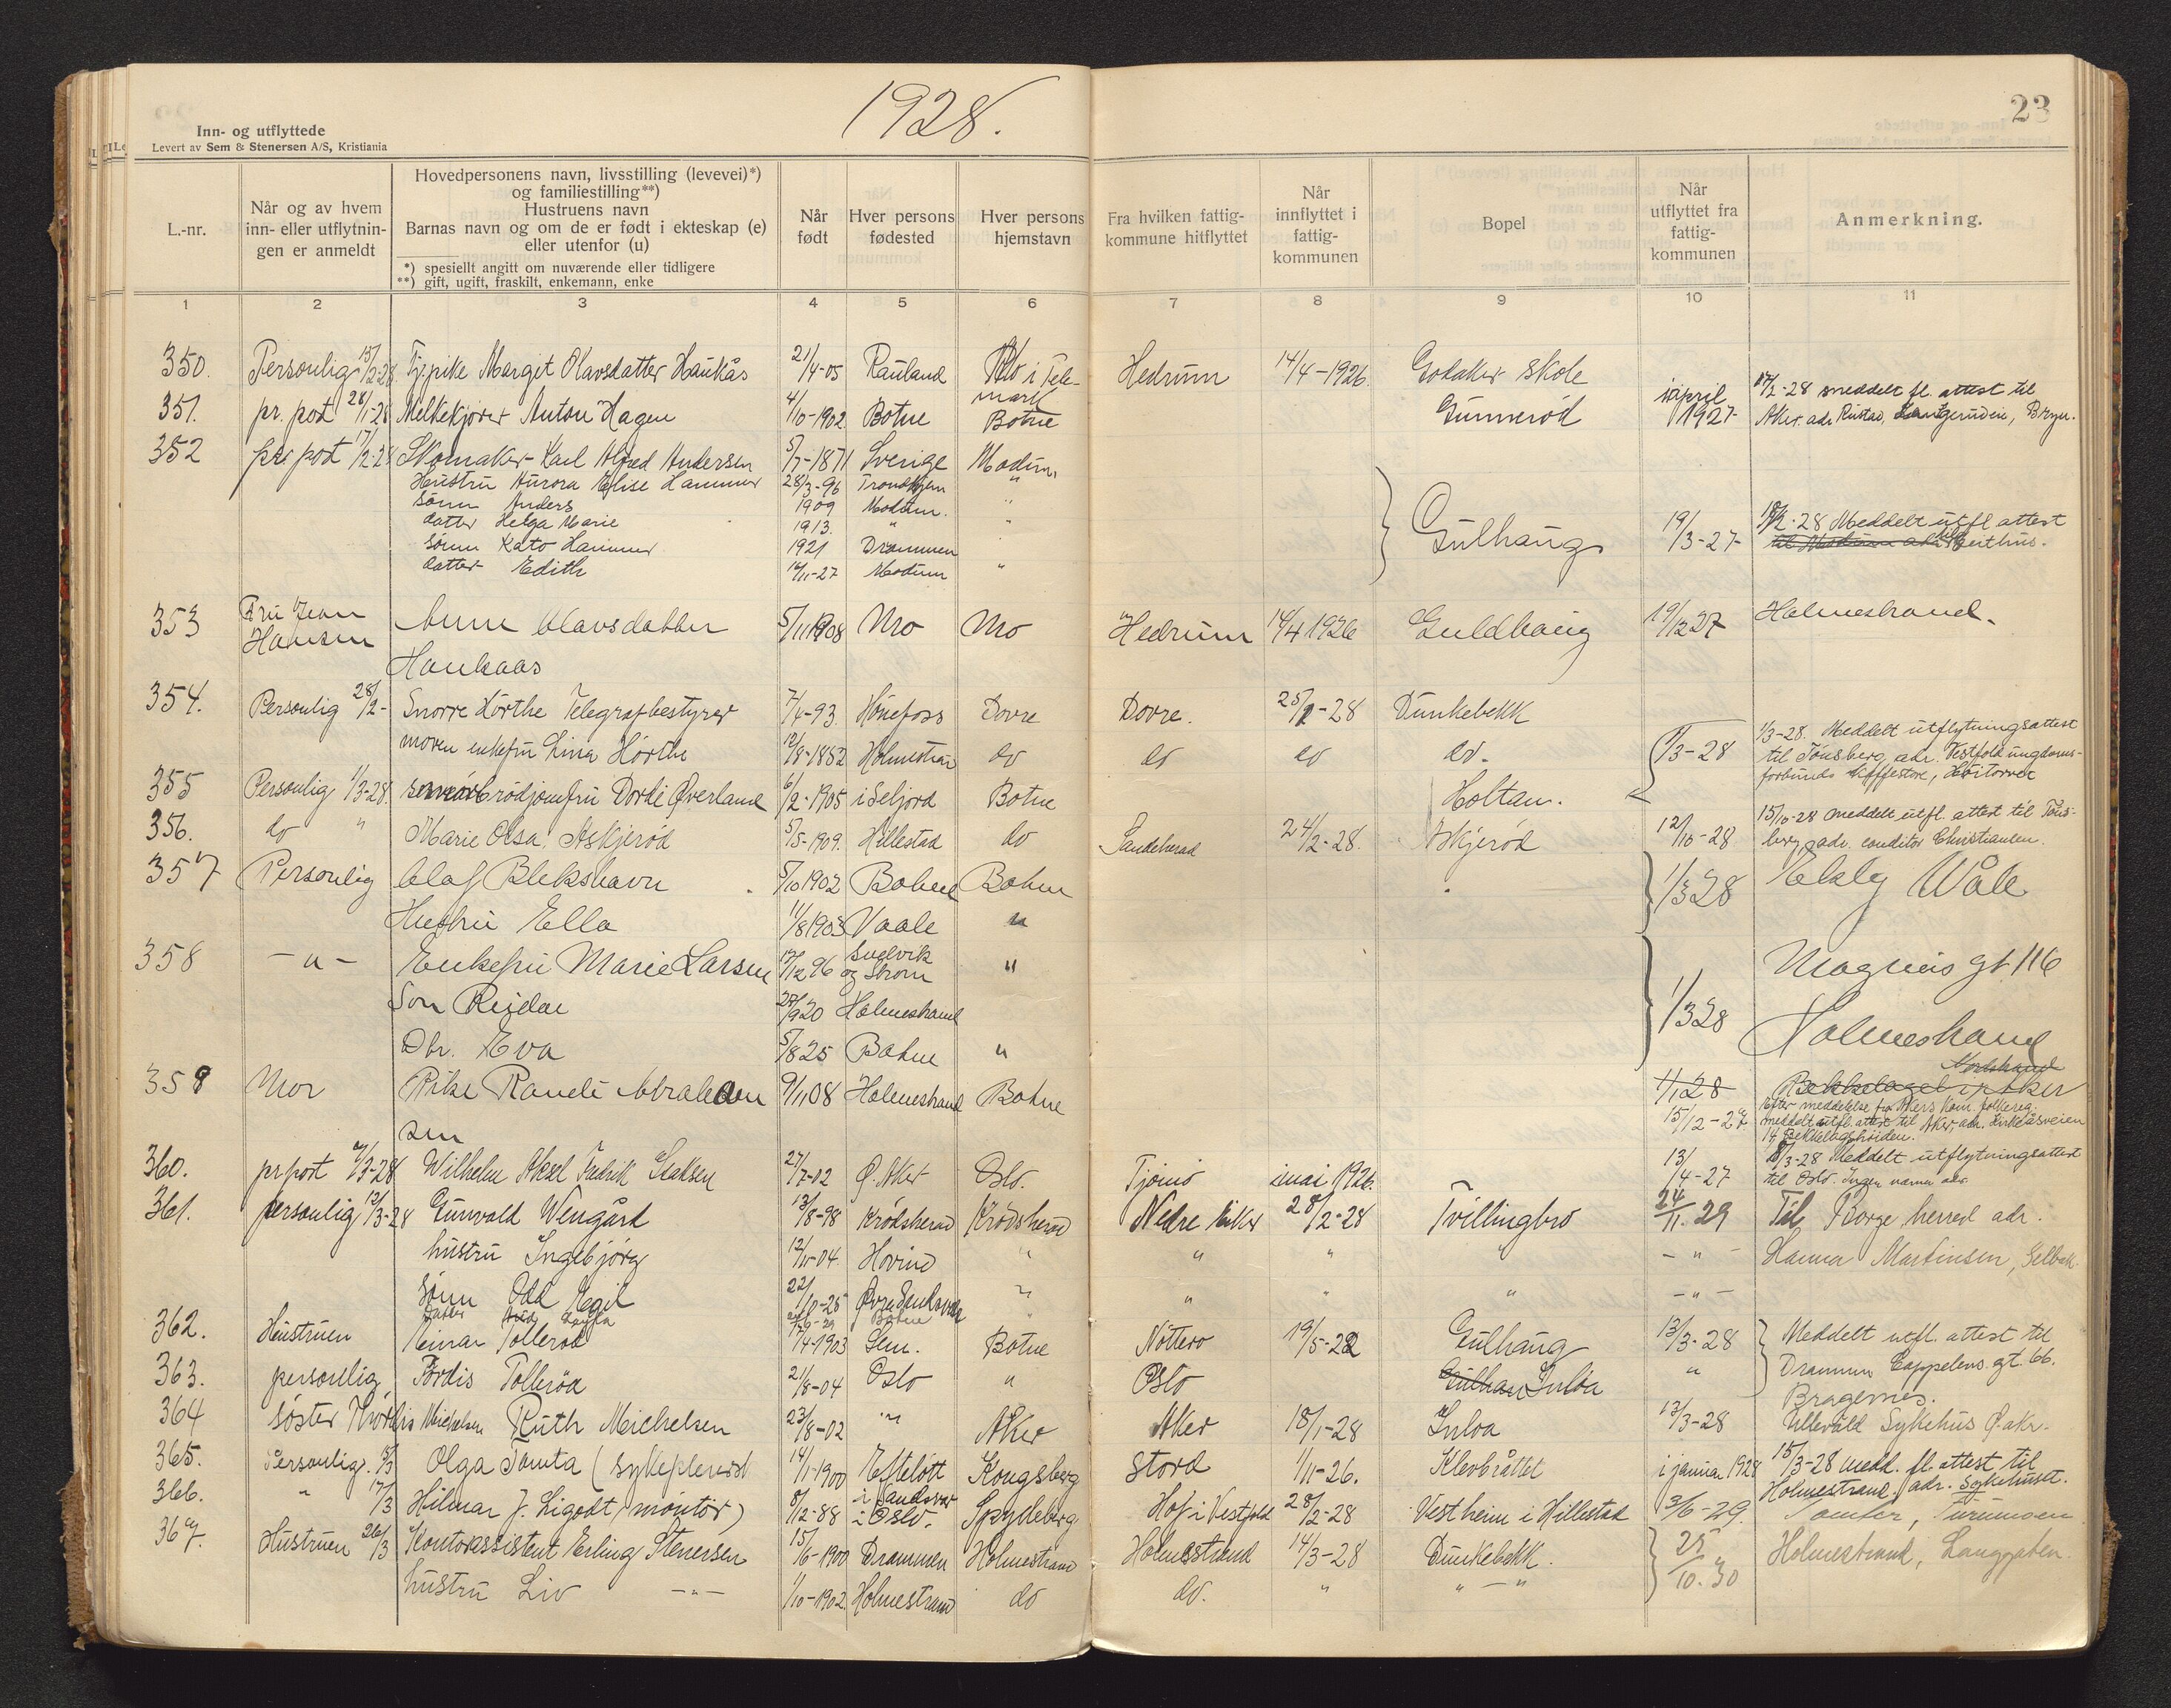 1928.
23
Inn- og utflyttede
Levert av Sem & Stenersen A/S, Kristiania
L.-nr.
Når og av hvem inn- eller utflytnin- gen er anmeldt
Hovedpersonens navn, livsstilling (levevei)*)
og familiestilling**)
Hustruens navn
Barnas navn og om de er født i ekteskap (e)
eller utenfor (u)
*) spesielt angitt om nuværende eller tidligere
**) gift, ugift, fraskilt, enkemann, enke
Når født
Hver persons fødested
Hver persons hjemstavn
Fra hvilken fattig- kommune hitflyttet
Når innflyttet i fattig- kommunen
Bopel
Når utflyttet fra fattig- kommunen
Anmerkning.
1 2 3 4 5 6 7 8 9 10 11
350. Personlig 15/2-28. Tjepike Margit Olavsdatter Haukås 21/4-05 Rauland Mo i Tele- Hedrum 14/4-1926. Solaker skole
mark
351. pr. post 28/1-28 Melkekjører Anton Hagen 4/10-1902. Botne Botne Gunnerød i april 1927- 17/2-28 meddelt fl. attest til
Aker. adr. Rustad, Bryn.
352 pr post 17/2-28 Skomaker Karl Alfred Andersen 5/7-1871 Sverige Modum
Hustru Aurora Elise Hammer 28/3-96 Trondhjem "
sønn Anders 1909 Modum. "
datter Helga Marie 1913. " "
sønn Kato Hammer 1921 Drammen Gulhaug 19/3-27- 18/2-28 Meddelt utfl attest
datter Edith 16/11-27 Modum " til Modum adr. Geithus.
353 Fru Jean Hansen Anne Olavsdatter 5/11 1908 Mo Mo Hedrum 14/4 1926 Guldhaug 19/12 27 Holmestrand.
Haukaas
354. Personlig 28/2- Snorre Hörthe Telegrafbestyrer 7/4-93 Hønefoss Dovre Dovre. 25/2-28 Dunkebekk
moren enkefru Lina Hörthe 12/8-1852 Holmestran do do do do.
1/3-28 1/3-28. Meddelt utflytningsattest
til Tønsberg, adr. Vestfold ungdoms-
forbunds kaffestove,
355 Personlig 1/3-28. smørbrødjomfru Dordi Øverland 6/2-1905 i Seljord Botne Holtan.
356. do " Marie Olsa. Askjerød 5/5-1909. Hillestad do Sandeherad 24/2-28. Askjerød 12/10-28 15/10-28 meddelt utfl. attest til Tøns-
berg, adr. conditor Christiansen.
357 Personlig Olaf Blekshavn 5/10 1902 Botne Botne 1/3 28 Ekely Våle
Hustru Ella 11/8 1903 Vaale "
358 -"- Enkefru Marie Larsen 17/12 96 Svelvik og Strøm " 1/3 28 Magnus gt 116
Son Reidar 27/9 20 Holmestrand Holmestrand
Dtr. Eva 5/8 25 Botne "
359 Mor Pike Randi Abraham 9/11 08 Holmestrand Botne 1/1 28 Bekkelaget i Aker Nordstrand
sen 15/12-27 Efter meddelelse fra Akers kom. folkereg.
meddelt utfl. attest til Aker adr. Kirkeåsveien
14 Bekkelagshøiden.
360. pr post 7/3-28 Wilhelm Aksel Fredrik Isaksen 27/7-02 Ø. Aker Oslo. Tjømø i mai 1926. 13/4-27 8/3-28 Meddelt utflytningsattest
til Oslo. Ingen nærmere adr.
361. personlig 12/3-28 Gunvald Wengård 13/8-98 Krødsherad Krødsherad Nedre Eiker 28/2-28 Tvillingbro 24/11.29 Til Borge herred adr.
hustru Ingebjørg 12/11-04 Hovind " " " " -"- Hanna Martinsen, Selbak.
sønn Odd Egil 22/10-25 Øvre Sandsvær " " " " -"-
datter Botne "
362. Hustruen Einar Tollerød 17/4-1903 Sem. Botne Nøtterø 19/5-22 Gulhaug 13/3-28 Meddelt utfl. attest til
363. personlig Tordis Tollerød 21/8-04 Oslo " Oslo Gulhau Snløa " Drammen Cappelens gt. 66.
Bragernes.
364 søster Thordis Michelsen Ruth Michelsen 23/8-02 " Aker Aker 18/1-28 13/3-28 Ullevåld Sykehus Ø. akr.
365. Personlig 15/3 Olga Tomta (sykepleierske 14/1-1900 Efteløtt i Sandsvær Kongsberg Stord 1/11-26. Klevbråttet i januar 1928 15/3-28 medd. fl. attest til
Holmestrand. adr. Sykehuset.
366. " 17/3 Hilmar J. Ligodt, montør) 8/12-88 i Oslo. Spydeberg Hof i Vestfold 28/2-28 Vestheim i Hillestad 3/6-29. Tomter,
367. Hustruen 26/3 Kontorassistent Erling Stenersen 15/6-1900 Drammen Holmestrand Holmestrand 14/3-28 Dunkebekk. 25/10.30 Holmestrand, Langgaten.
hustru Liv -"- 1/10-1902. Holmestrand do do. " "-"